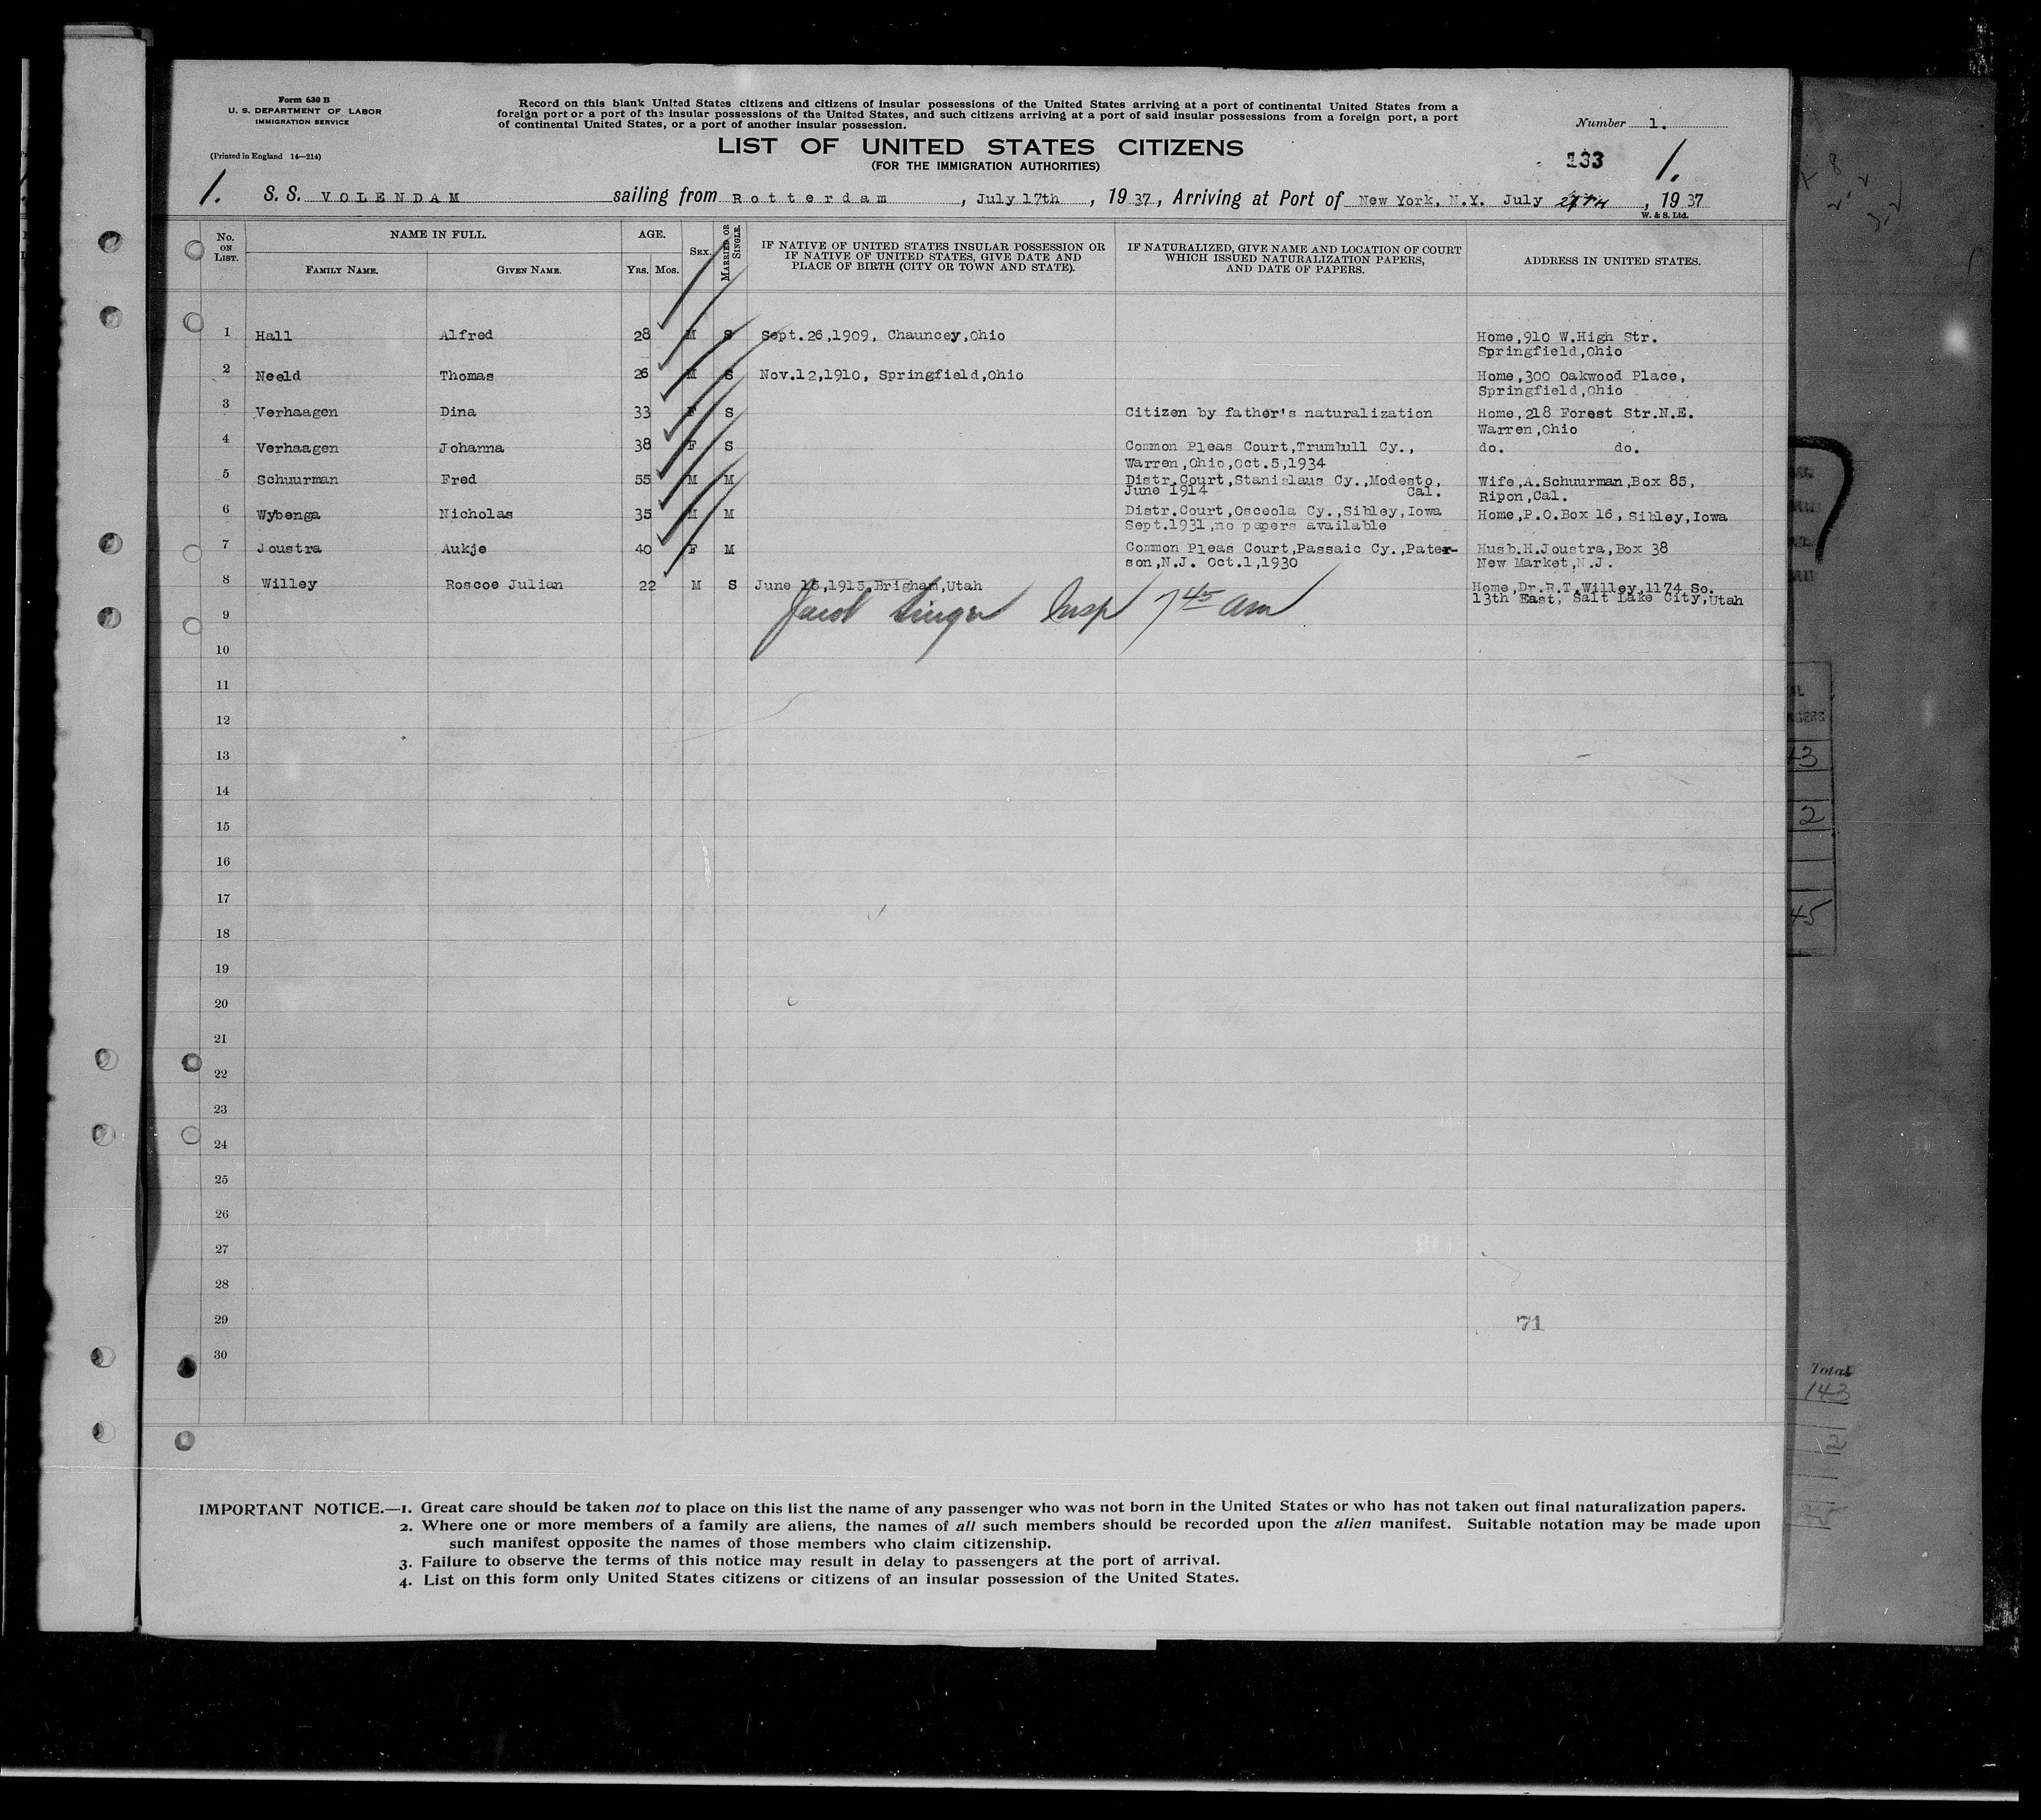 Form 630 B
U. S. DEPARTMENT OF LABOR
IMMIGRATION SERVICE
(Printed in England 14—214)
Record on this blank United States citizens and citizens of insular possessions of the United States arriving at a port of continental United States from a
foreign port or a port of the insular possessions of the United States, and such citizens arriving at a port of said insular possessions from a foreign port, a port
of continental United States, or a port of another insular possession.
Number 1.
LIST OF UNITED STATES CITIZENS
(FOR THE IMMIGRATION AUTHORITIES)
133 1.
1. S. S. VOLENDAM sailing from Rotterdam, July 17th, 1937, Arriving at Port of New York, N.Y. July , 1937
W. & S. Ltd.
No. ON LIST.
NAME IN FULL.
FAMILY NAME. GIVEN NAME.
AGE.
Yrs. Mos.
SEX.
MARRIED OR SINGLE.
IF NATIVE OF UNITED STATES INSULAR POSSESSION OR
IF NATIVE OF UNITED STATES, GIVE DATE AND
PLACE OF BIRTH (CITY OR TOWN AND STATE).
IF NATURALIZED, GIVE NAME AND LOCATION OF COURT
WHICH ISSUED NATURALIZATION PAPERS,
AND DATE OF PAPERS.
ADDRESS IN UNITED STATES.
1 Hall Alfred 28 M S Sept.26,1909, Chauncey,Ohio Home,910 W.High Str.
Springfield,Ohio
2 Neeld Thomas 26 M S Nov.12,1910, Springfield,Ohio Home,300 Oakwood Place,
Springfield,Ohio
3 Verhaagen Dina 33 F S Citizen by father's naturalization Home,218 Forest Str.N.E.
Warren,Ohio
4 Verhaagen Johanna 38 F S Common Pleas Court,Trumbull Cy., do. do.
Warren,Ohio,Oct.5,1934
5 Schuurman Fred 55 M M Distr.Court,Stanislaus Cy.,Modesto, Wife,A.Schuurman,Box 85,
June 1914 Cal. Ripon,Cal.
6 Wybenga Nicholas 35 M M Distr.Court,Osceola Cy.,Sibley,Iowa Home,P.O.Box 16,Sibley,Iowa
Sept.1931,no papers available
7 Joustra Aukje 40 F M Common Pleas Court,Passaic Cy.,Pater- Husb.H.Joustra,Box 38
son,N.J. Oct.1,1930 New Market,N.J.
8 Willey Roscoe Julian 22 M S June 15,1915,Brigham,Utah Home,Dr.R.T.Willey,1174 So.
13th East, Salt Lake City,Utah
Jacob Singer Insp 7 45 am
9
10
11
12
13
14
15
16
17
18
19
20
21
22
23
24
25
26
27
28
29
30
71
IMPORTANT NOTICE.—1. Great care should be taken not to place on this list the name of any passenger who was not born in the United States or who has not taken out final naturalization papers.
2. Where one or more members of a family are aliens, the names of all such members should be recorded upon the alien manifest. Suitable notation may be made upon
such manifest opposite the names of those members who claim citizenship.
3. Failure to observe the terms of this notice may result in delay to passengers at the port of arrival.
4. List on this form only United States citizens or citizens of an insular possession of the United States.
Total
143
2